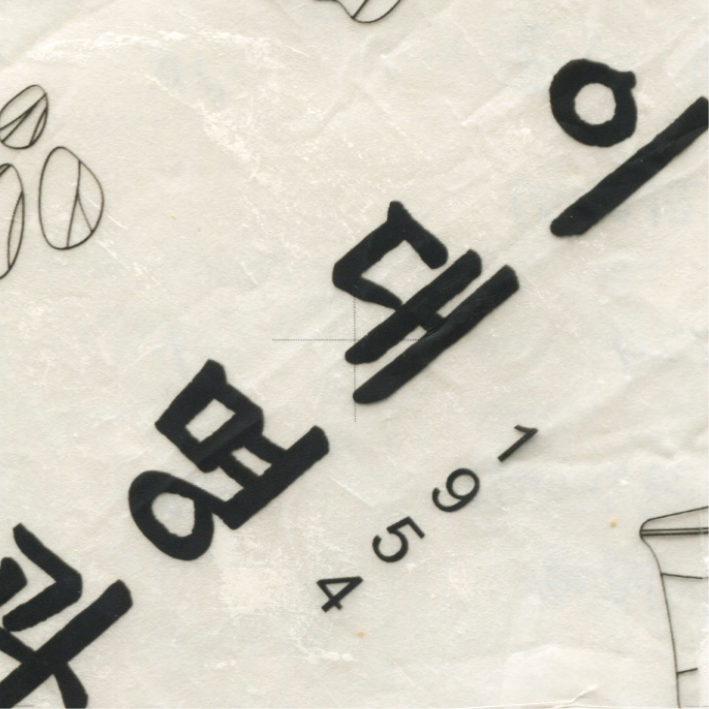 이대명과
1954